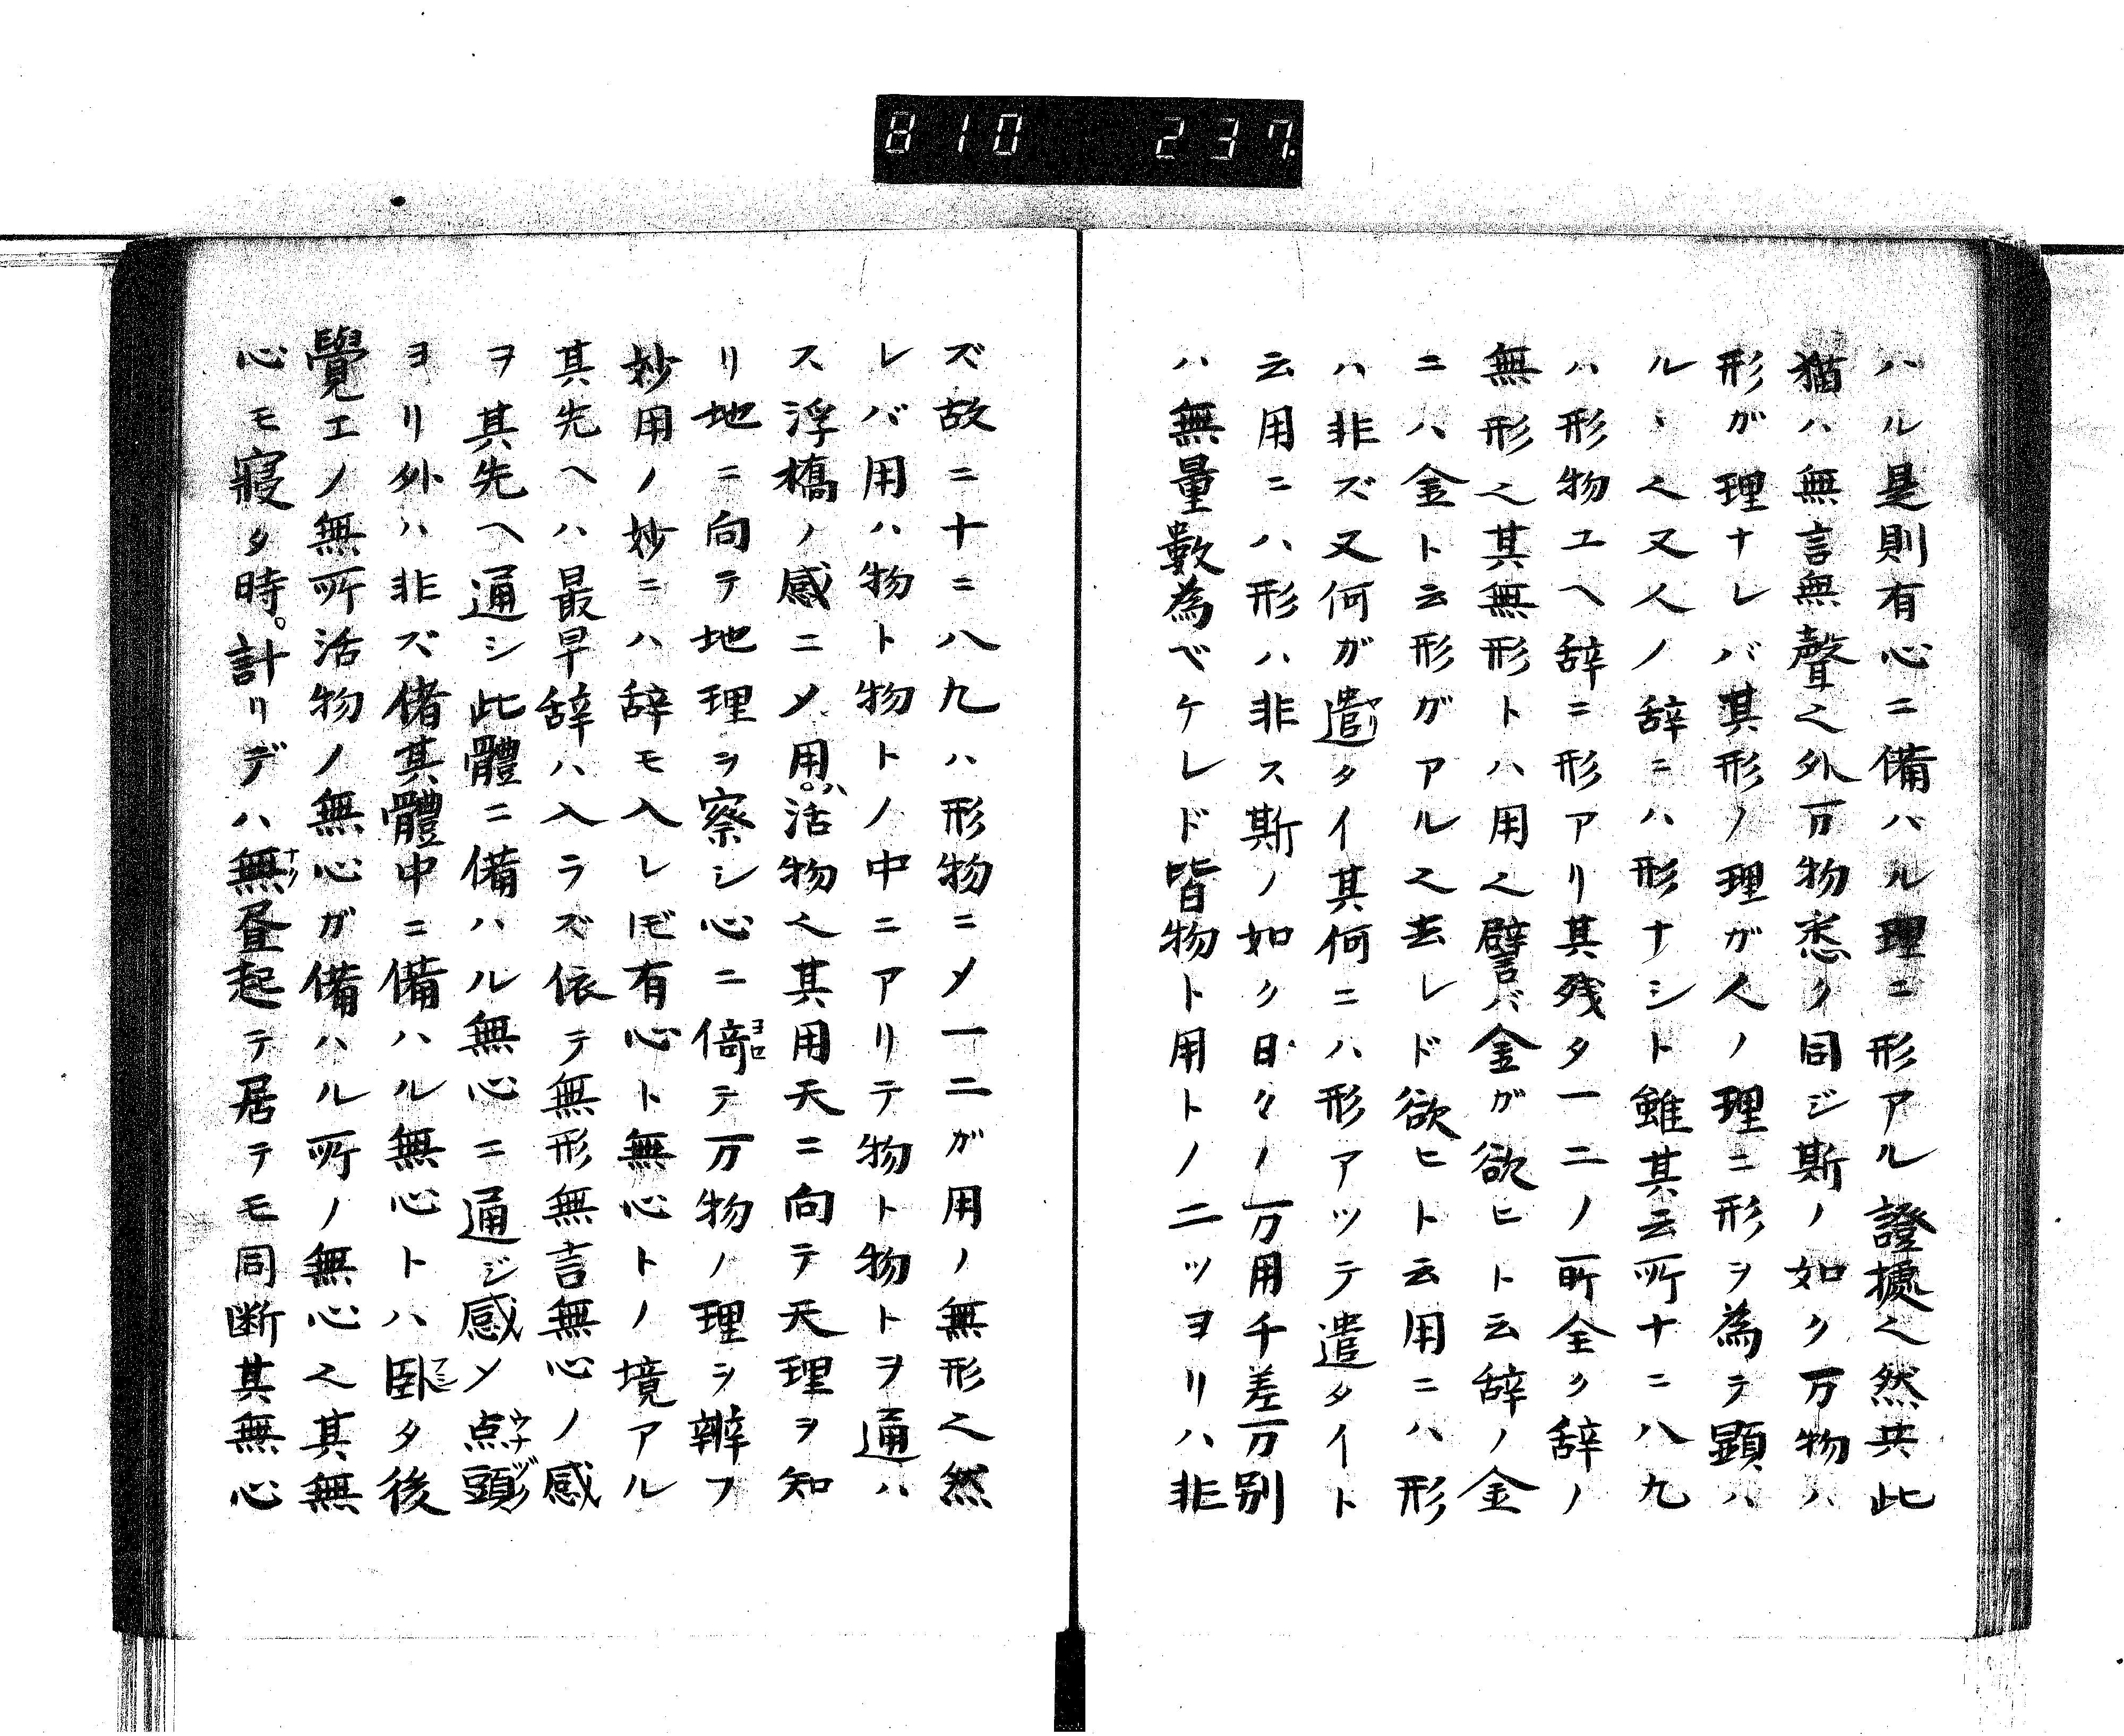 810 237.
ハル是則有心ニ備ハル理ニ形アル證據𪜈然共此
猶ハ無言無聲𪜈外万物悉ク同ジ斯ノ如ク万物ハ
形ガ理ナレバ其形ノ理ガ人ノ理ニ形ヲ為テ顕ハ
ルヽ𪜈又人ノ辞ニハ形ナシト雖其云所十ニ八九
ハ形物ユヘ辞ニ形アリ其残タ一二ノ所全ク辞ノ
無形𪜈其無形トハ用𪜈譬バ金ガ欲ヒト云辞ノ金
ニハ金ト云形ガアル𪜈去レド欲ヒト云用ニハ形
ハ非ズ又何ガ遣タイ其何ニハ形アツテ遣タイト
云用ニハ形ハ非ス斯ノ如ク日々ノ万用千差万別
ハ無量數為ベケレド皆物ト用トノ二ツヨリハ非
ズ故ニ十ニ八九ハ形物ニ〆一二ガ用ノ無形𪜈然
レバ用ハ物ト物トノ中ニアリテ物ト物トヲ通ハ
ス浮橋ノ感ニ〆用ハ活物𪜈其用天ニ向テ天理ヲ知
リ地ニ向テ地理ヲ察シ心ニ倚ヨロテ万物ノ理ヲ辨フ
妙用ノ妙ニハ辞モ入レ𪜈有心ト無心トノ境アル
其先ヘハ最早辞ハ入ラズ依テ無形無言無心ノ感
ヲ其先ヘ通シ此體ニ備ハル無心ニ通ジ感〆点頭ウナヅク
ヨリ外ハ非ズ偖其體中ニ備ハル無心トハ臥タ後
覺エノ無所活物ノ無心ガ備ハル所ノ無心𪜈其無
心モ寝タ時。計リデハ無ナク昼起テ居テモ同断其無心